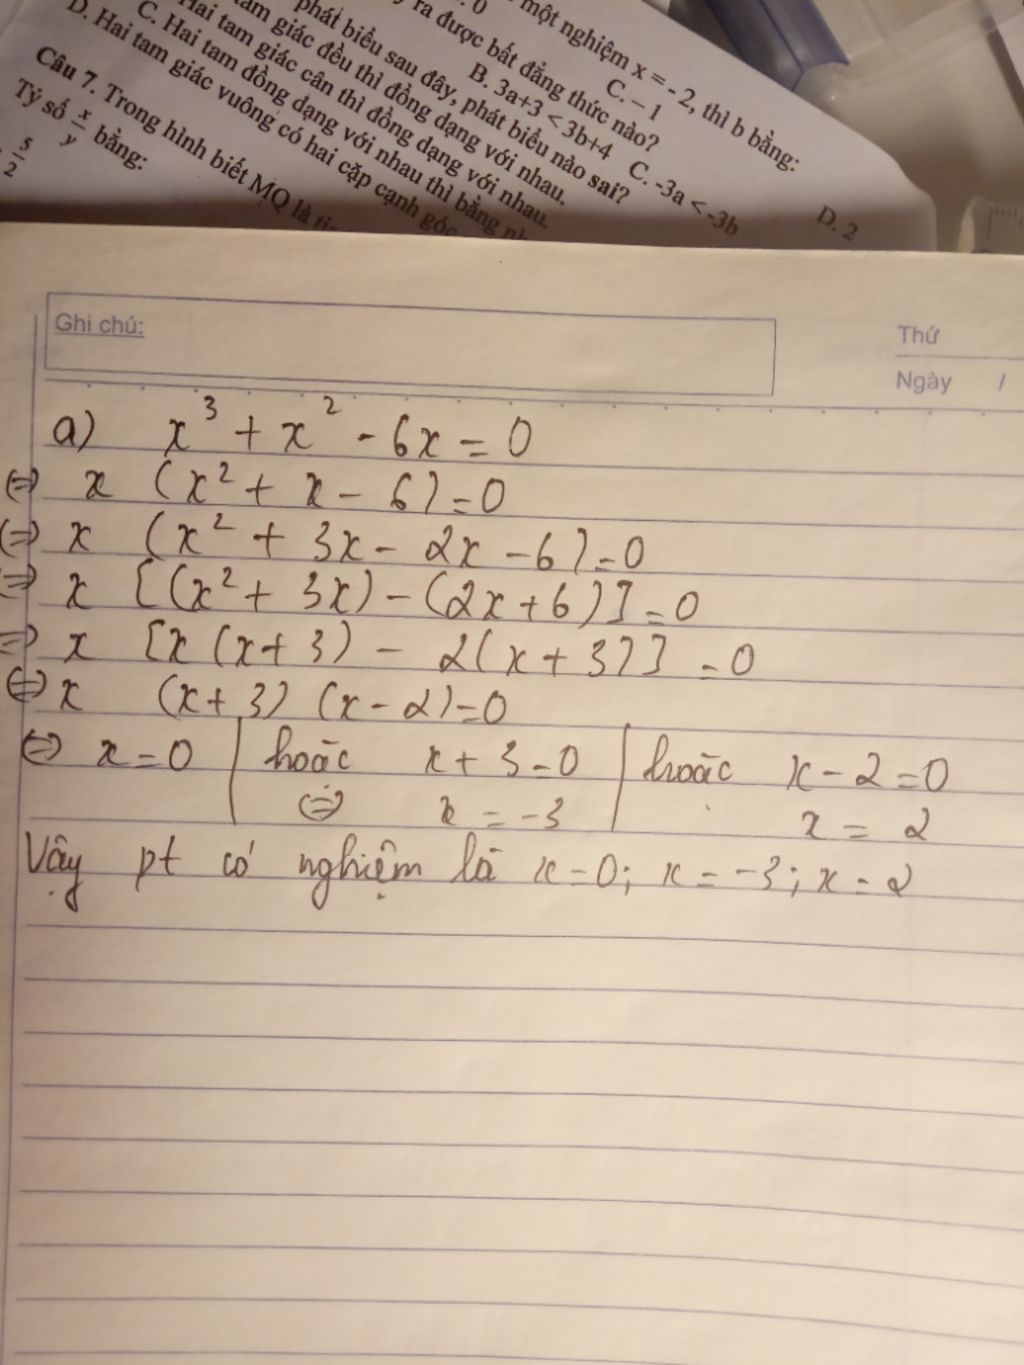 một nghiệm x = - 2, thì b bằng:
C. – 1
D. 2
ra được bất đẳng thức nào?
B. 3a+3 < 3b+4
C. -3a < -3b
phát biểu sau đây, phát biểu nào sai?
tam giác đều thì đồng dạng với nhau.
Hai tam giác cân thì đồng dạng với nhau.
C. Hai tam đồng dạng với nhau thì bằng
D. Hai tam giác vuông có hai cặp cạnh góc
Câu 7. Trong hình biết MQ là
Tỷ số x/y bằng:
5/2
Ghi chú:
Thứ
Ngày /
a) x³ + x² - 6x = 0
⇔ x (x² + x - 6) = 0
⇔ x (x² + 3x - 2x - 6) = 0
⇔ x [(x² + 3x) - (2x + 6)] = 0
⇔ x [x (x + 3) - 2(x + 3)] = 0
⇔ x (x + 3) (x - 2) = 0
⇔ x = 0 | hoặc x + 3 = 0 | hoặc x - 2 = 0
⇔ x = -3 | x = 2
Vậy pt có nghiệm là x = 0; x = -3; x = 2